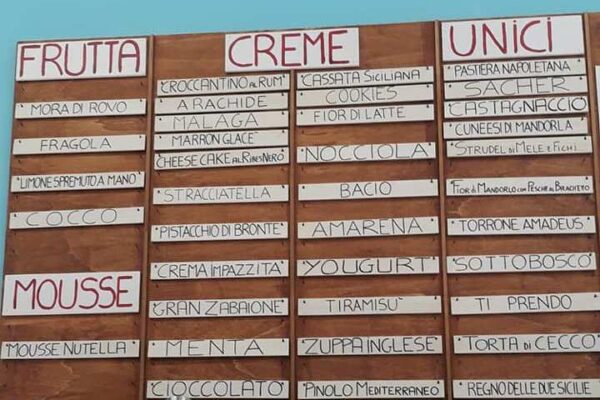 FRUTTA
MORA DI ROVO
FRAGOLA
"LIMONE SPREMUTO A MANO"
COCCO
MOUSSE
MOUSSE NUTELLA
CREME
"CROCCANTINO AL RUM"
ARACHIDE
MALAGA
"MARRON GLACE"
CHEESE CAKE AL RIBES NERO
STRACCIATELLA
"PISTACCHIO DI BRONTE"
"CREMA IMPAZZITA"
"GRAN ZABAIONE"
MENTA
"CIOCCOLATO"
"CASSATA SICILIANA
COOKIES
FIOR DI LATTE
NOCCIOLA
BACIO
AMARENA
YOUGURT
TIRAMISU'
ZUPPA INGLESE
PINOLO MEDITERRANEO
UNICI
PASTIERA NAPOLETANA
SACHER
CASTAGNACCIO
"CUNEESI DI MANDORLA
STRUDEL DI MELE E FICHI
FIOR DI MANDORLO CON PESCHE AL BRACHETTO
TORRONE AMADEUS
SOTTOBOSCO
TI PRENDO
TORTA DI CECCO
REGNO DELLE DUE SICILIE